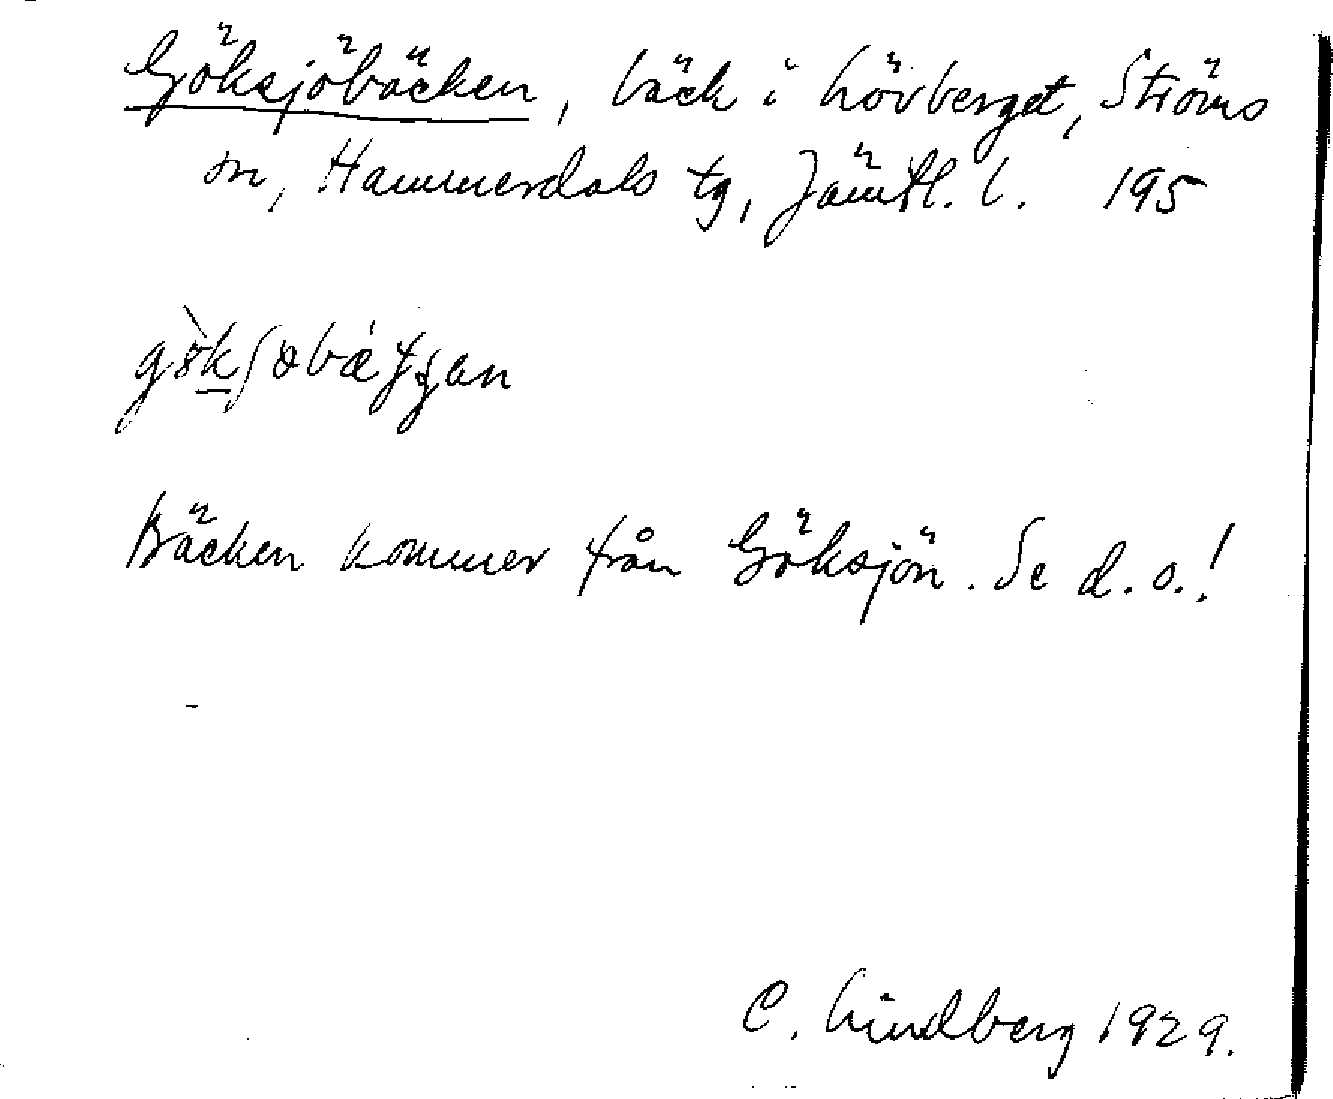 Göksjöbäcken, bäck i Lövberget, Ströms
sn, Hammerdals tg, Jämtl. l. 195
Bäcken kommer från Göksjön. Se d. o.!
C. Lindberg 1929.